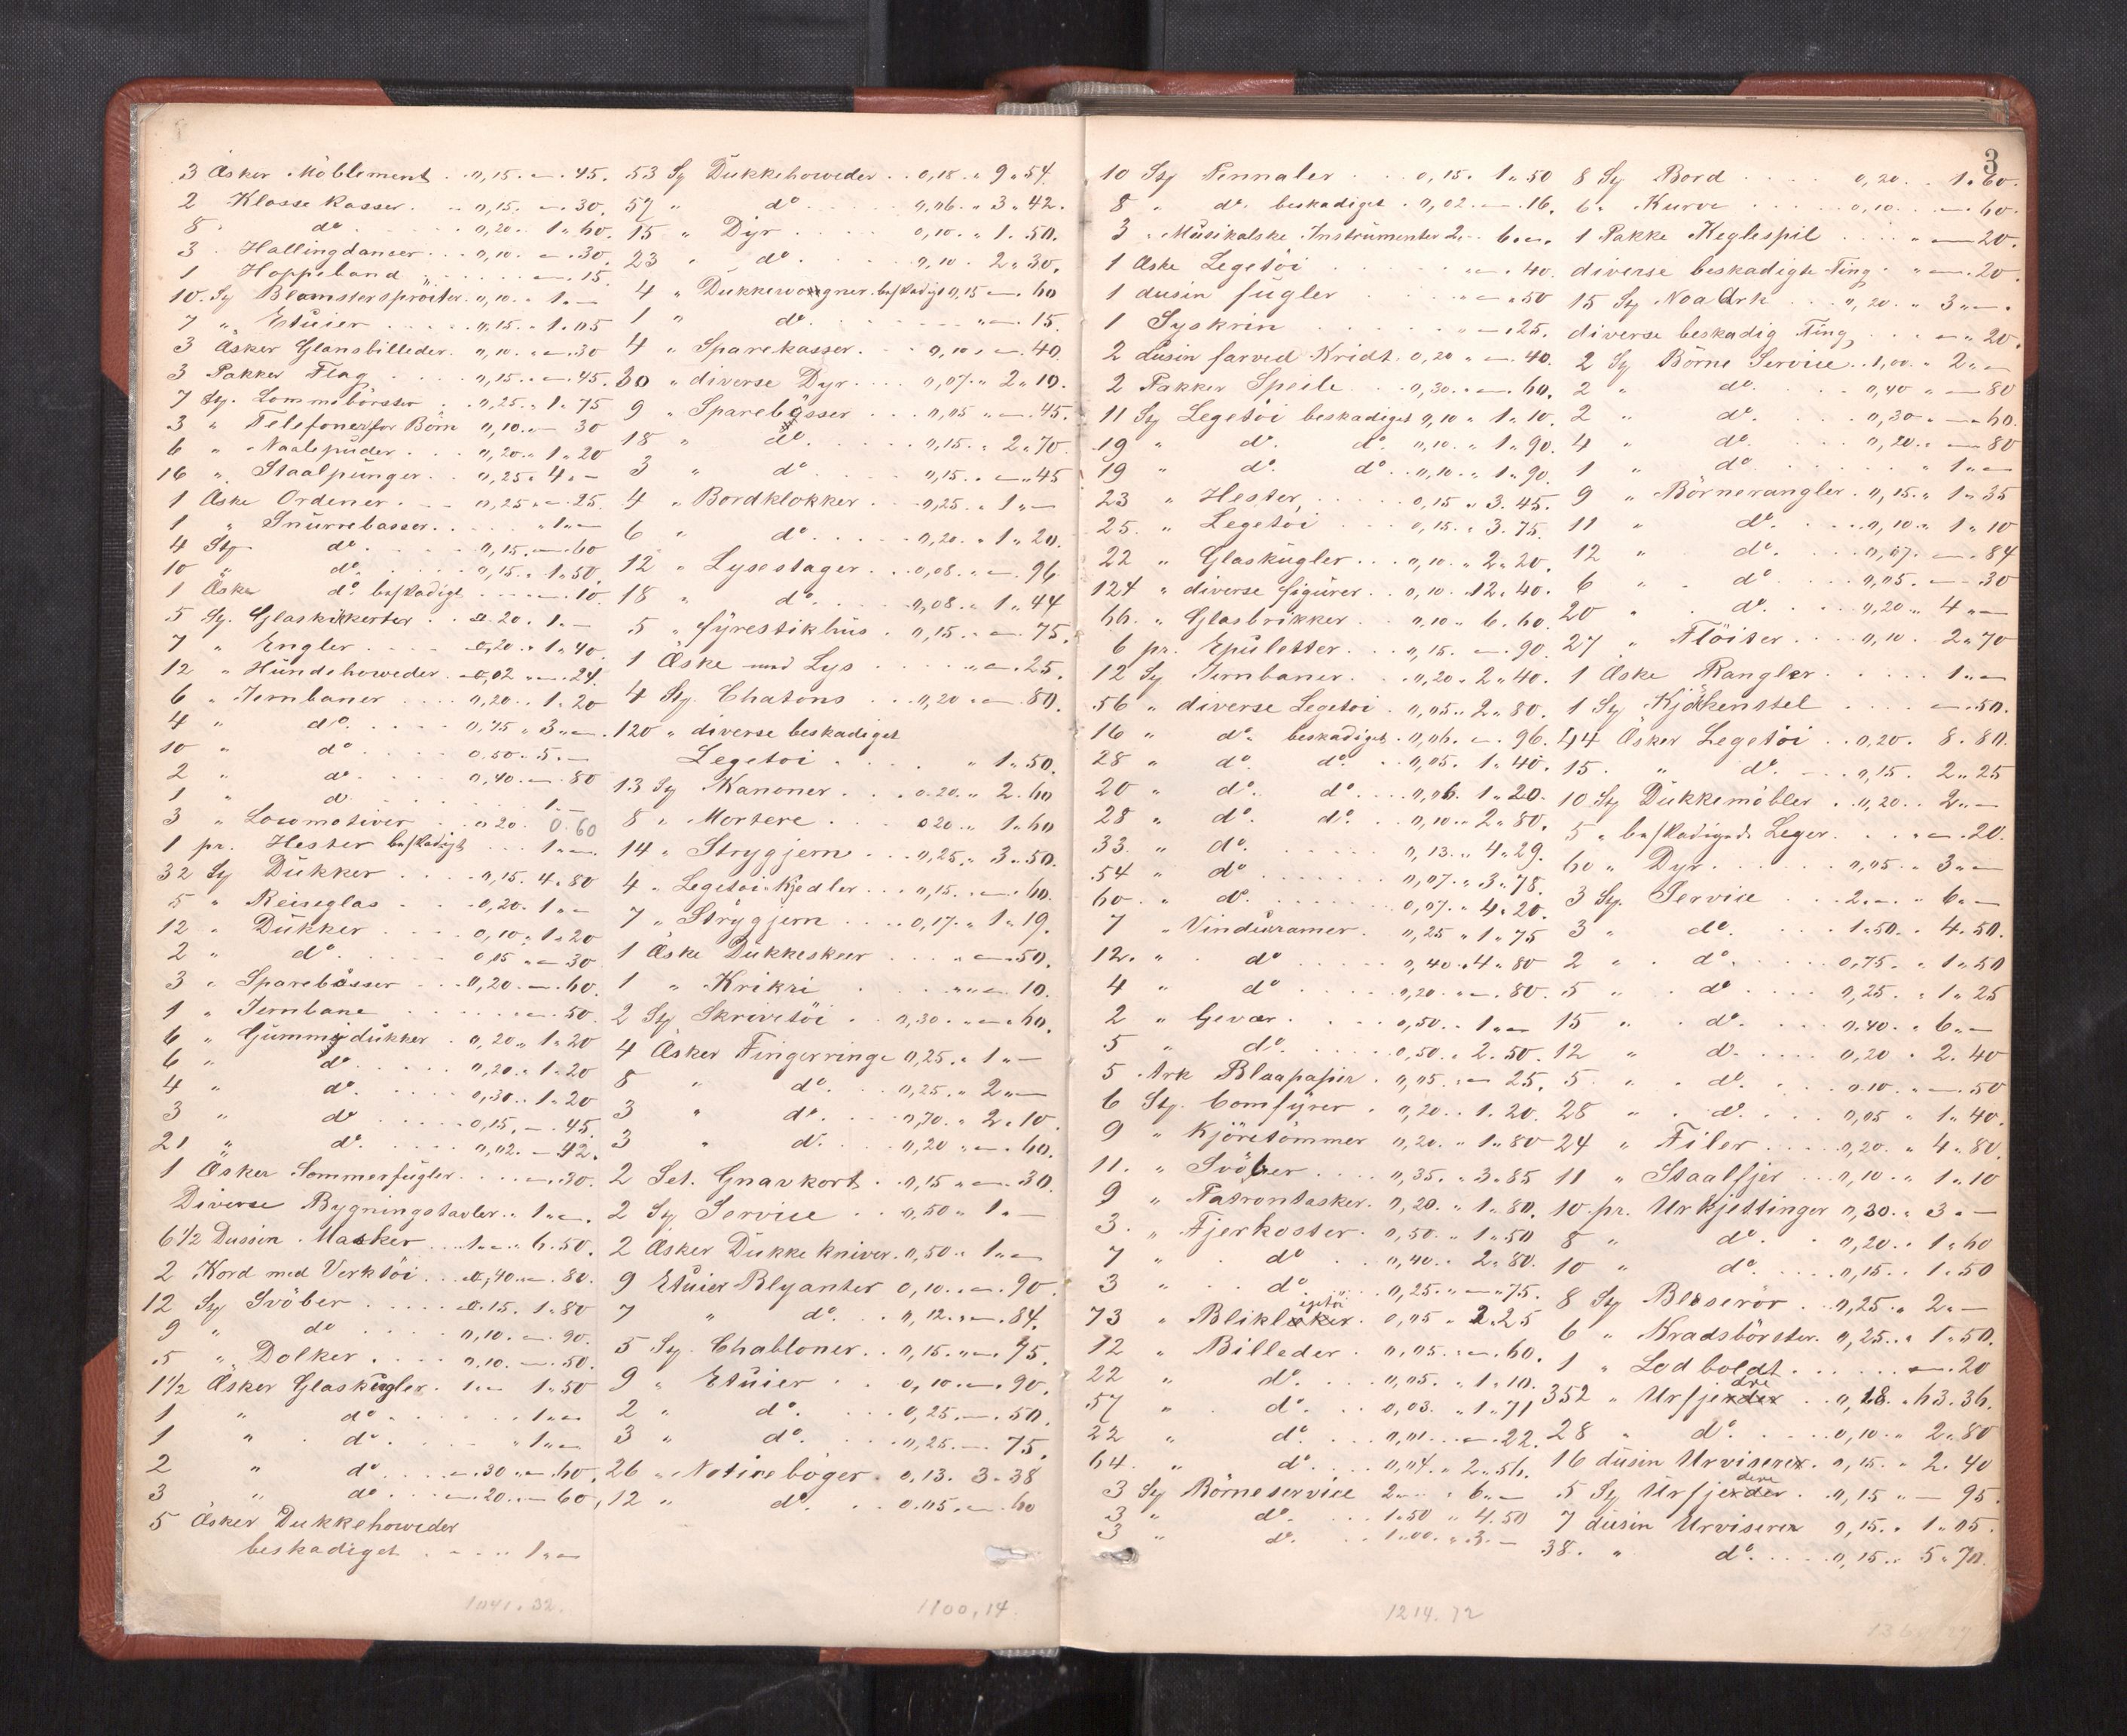 3 Æsker Möblement . . 0,15. " — . 45.
2 Klosse kasser . . . 0,15. — 30.
8 " do . . . . 0,20 . . 1 " 60.
3 Hallingdanser . . . 0,10. . — . 30.
1 Hoppeband . . . . . — . 15.
10. Sty Blomstersprøiter. 0,10. " 1. —
7 " Etuier . . . . . 0,15. . 1. 05
3 Æsker Glansbilleder. 0,10. " — . 30
3 Pakker Flag . . . . 0,15. . — . 45.
7 Sty. Lommebörster . . 0,25. " 1 " 75
3 " Telefoner for Börn 0,10. " — 30
6 " Naalepuder . . . 0,20. " 1 " 20
16 " Staalpunger . . 0,25 " 4 " —
1 Æske Ordener . . . 0,25 " — . 25.
1 " Snurrebasser . . . . . " 1 " —
4 Sty do . . . . 0,15. — . 60
10 " do . . . . 0,15. . 1 " 50.
1 Æske do beskadiget . . . . — . 10.
5 Sty. Glaskikkerter . . 0. 20 . 1. —
7 " Engler . . . . 0,20 . " 1 " 40.
12 " Hundehoveder . 0,02 " — . 24.
6 " Jernbaner . . . . 0,20. . 1. 20
4 " do . . . . 0,75 " 3 " —
10 " do . . . . 0.50. . 5. —
2 " do . . . . 0,40. — . 80
1 " do . . . . . . 1. —
3 " Locomotiver . . " 20. 0. 60
1 pr. Hester beskadiget . . . 1 " —.
32 Sty Dukker . . . . 0,15. 4. 80
5 " Reiseglas . . . 0,20. 1 " —
12 " Dukker . . . . 0,10 . 1 " 20
2 " do . . . . . 0,15 " — 30
3 " Sparebösser . . . 0,20. — . 60.
1 " Jernbane . . . . . . — . 50.
6 " Gummidukker . 0,20 " 1 " 20
6 " do . . . . 0,20. . 1 " 20
4 " do . . . . 0,30. . 1. 20
3 " do . . . . 0,15. . — . 45.
21 " do . . . . 0,02. — 42.
1 Æsker Sommerfugler . . . . — . 30.
Diverse Bygningstavler . . 1 " —.
6 1/2 Dussin Masker . . 1 " — " 6. 50.
2 Kord med Verktöi . . 0,40. — . 80.
12 Sty Svöber . . . . . 0. 15. 1. 80
9 " do . . . . . 0,10. — . 90.
5 " Dolker . . . . 0.10. — . 50.
1 1/2 Æsker Glaskugler. 1 " — 1. 50
1 " do . . . . . . 1 " —
1 " do . . . . . " 1 " —
2 " do . . . — . 30 " — . 60.
3 " do . . . — . 20. — 60.
5 Æsker Dukkehoveder
beskadiget . . . . . 1 " —
1041. 32.
53 Sty Dukkehoveder . . 0,18. " 9 " 54.
57 " do . . . . . 0,06. " 3 " 42.
15 " Dyr . . . . . 0,10. " 1. 50.
23 " do . . . . . 0,10. 2 " 30.
4 " Dukkevogner. beskadiget 0,15 — . 60
1 " do . . . . . . . " — . 15.
4 " Sparekasser . . 0,10 " — . 40.
30 " diverse Dyr . . . 0,07. " 2 " 10.
9 " Sparebösser . . . 0,05 " — . 45.
18 " do . . . . . 0,15. " 2 " 70.
3 " do . . . . . 0,15. . — " 45
4 " Bordklokker . . 0,25. " 1 " —
6 " do . . . . . 0,20. " 1 " 20.
12 " Lysestager . . 0,08. " — . 96
18 " do . . . . 0,08. " 1 " 44
5 " fyrestikhus . 0,15. " — . 75.
1 Æske med Lys . . . . . " — . 25.
4 Sty. Chatons . . . 0,20 " — . 80.
120 " diverse beskadiget
Legetöi . . . . . " 1 " 50.
13 Sty Kanoner . . . 0. 20. " 2. 60
8 " Mortere . . . . 0 20. " 1. 60
14 " Strygjern . . . 0,25. " 3 " 50.
4 " Legetöi Kjedler . . . 0,15. . — . 60.
7 " Strygjern . . . 0,17. " 1 " 19.
1 Æske Dukkeskeer . . . . " — " 50.
1 " Krikri . . . . " " — . 10.
2 Sty Skrivetöi . . 0,30. " — " 60.
4 Æsker Fingerringe 0,25. " 1 " —
8 " do . . . 0,25. " 2 " —
3 " do . . . 0,70. " 2 " 10.
3 " do . . . 0,20 " — . 60.
2 Set. Gnavkort . 0,15 " — . 30.
2 Sty Service . . 0,50 " 1. —
2 Æsker Dukke kniver. 0,50 . 1 " —
9 Etuier Blyanter 0,10. . — . 90.
7 " do . 0,12. " — . 84.
5 Sty. Chabloner . . 0,15. " — . 75.
9 " Etuier . . 0,10 — . 90.
2 " do . . . 0,25. — . 50.
3 " do . . . . 0,25. — 75.
26 " Notirebøger . 0.13. 3. 38
12 " do . . . 0.05. — . 60
1100,14.
3
10 Sty Pennaler . . . . 0,15. 1 " 50
8 " do beskadiget . 0,02. — . 16.
3 " Musikalske Instrumenter 2. — 6. —.
1 Æske Legetöi . . . . . . — . 40.
1 dusin fugler . . . . . . — " 50
1 Syskrin . . . . . . — . 25.
2 dusin farved Kridt. 0,20 " — . 40.
2 Pakker Speile . . . 0,30. . — . 60.
11 Sty Legetöi beskadiget 0,10 " 1 " 10.
19 " do do 0,10. " 1 " 90.
19 " do do . . 0,10. " 1 " 90.
23 " Hester . . . . . 0,15 " 3. 45.
25. " Legetöi . . . 0,15. " 3. 75.
22 " Glaskugler . . . 0,10. " 2 " 20.
124 " diverse figurer . . 0,10. 12. 40.
66. " Glasbrikker . . 0,10 " 6. 60.
6 pr. Epuletter . . . 0,15. — . 90.
12 Sty Jernbaner . . . 0,20. 2 " 40.
56 " diverse Legetöi . 0,05. " 2 " 80.
16 " do beskadiget . 0,06. — . 96.
28 " do do . . 0,05. 1 " 40.
20 " do do . . . 0,06. 1 " 20.
28 " do do . . 0,10. " 2 " 80.
33. " do . . . . . . 0,13. " 4 " 29.
54 " do . . . . . . . 0,07. " 3 " 78.
60. " do . . . . . . . 0,07. " 4. 20.
7 " Vindusramer . 0,25 " 1 " 75
12. " do . . . . . 0,40. 4 " 80
4 " do . . . . . 0,20. " — . 80.
2 " Gevær . . . . . 0,50. . 1. —
5 " do . . . . . 0,50. " 2. 50.
5 Ark Blaapapir . 0,05. . — 25.
6 Sty. Comfyrer . 0,20. . 1. 20.
9 " Kjöretömmer 0,20. " 1 " 80
11. " Svöber . . . . 0,35. . 3 " 85
9 " Patrontasker. 0,20. " 1 " 80.
3. " Fjerkoster . 0,50. " 1 " 50
7 " do . . 0,40. . 2 " 80.
3 " do . . . 0,25. " — " 75.
73 " Bliklegetöi . 0,05 " 2.25
12 " Billeder . 0,05. " — . 60.
22 " do . . . 0,05. " 1 " 10.
57 " do . . 0,03. " 1 " 71
22 " do . . . 0,01. . — . 22.
64. " do . . . 0,04. " 2 " 56.
3 Sty Börneservice 2. — " 6 " —
3 " do . . . . 1. 50 " 4. 50
3 " do . . . . 1. 00. " 3. —
1214. 72
8 Sty Bord . . . . . 0,20. . 1. 60.
6 " Kurve . . . . . . 0,10. . — . 60.
1 Pakke Keglespil . . . . " — 20.
diverse beskadigte Ting . " — . 20.
15 Sty Noa Ark . . . 0,20. " 3 " —.
diverse beskadig Ting, . . . — " 20.
2 Sty Börne Service . . 1,00. " 2 " —
2 " do . . . . 0,40 " — 80
2 " do . . . . 0,30 " — 60.
4 " do . . . . 0,20. " — 80
1 " do . . . . . . " 1 " —
9 " Börnerangler . 0,15. " 1 " 35
11 " do . . . . 0,10. " 1 " 10
12 " do . . . . 0,07. — . 84
6 " do . . . . 0,05. — 30
20 " do . . . . 0,20 " 4 " —
27 " Flöiter . . . 0,10. 2 " 70
1 Æske Rangler . . . . . 1 " —
1 Sty Kjøkenstel . . . . — . 50.
44 Æsker Legetöi . . 0,20. 8. 80.
15. " do . . . 0,15. 2 " 25
10 Sty Dukkemöbler . . 0,20. . 2 " —
5 " beskadigede Leger . . . " — . 20.
60 " Dyr . . . . . 0,05. " 3 " —
3 Sty. Service . . . 2. — " 6 " —
3 " do . . . 1. 50. . 4. 50.
2 " do . . . . 0,75. " 1 " 50
5 " do . . . . 0,25. " 1 " 25
15 " do . . . . 0.40. " 6. —
12 " do . . . . 0,20 " 2. 40
5. " do . . . . 0.10. " — . 50
28 " do . . . . 0,05 " 1 " 40.
24 " Filer . . . . 0,20. " 4 " 80.
11 " Staalfjer . . . 0,10. " 1 " 10
10. pr. Urkjettinger 0,30. " 3. —
8 " do . . . 0,20. " 1 " 60
10 " do . . . . 0,15. . 1. 50
8 Sty Bläserör . . 0,25. " 2 " —
6 " Kradsbörster. 0,25. " 1 " 50.
1 " Lodboldt . . . . . . — . 20
352 " Urfjedre . . 0,18. " 63. 36.
28 " do . . . . . 0,10. " 2 " 80
16 dusin Urvisere . 0,15. " 2. 40
5 Sty Urfjedere . . 0,15 " — 95.
7 dusin Urvisere 0,15. " 1 " 05.
38. " do . . . . 0,15. " 5 " 70.